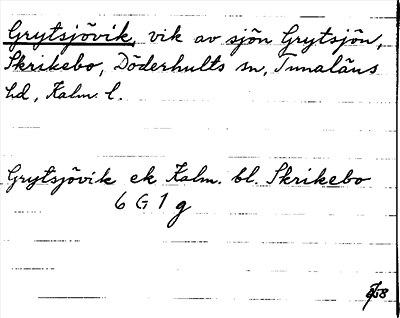 Grytsjövik, vik av sjön Grytsjön,
Skrikebo, Döderhults sn, Tunaläns
hd, Kalm. l.
Grytsjövik ek Kalm. bl. Skrikebo
6 G 1 g